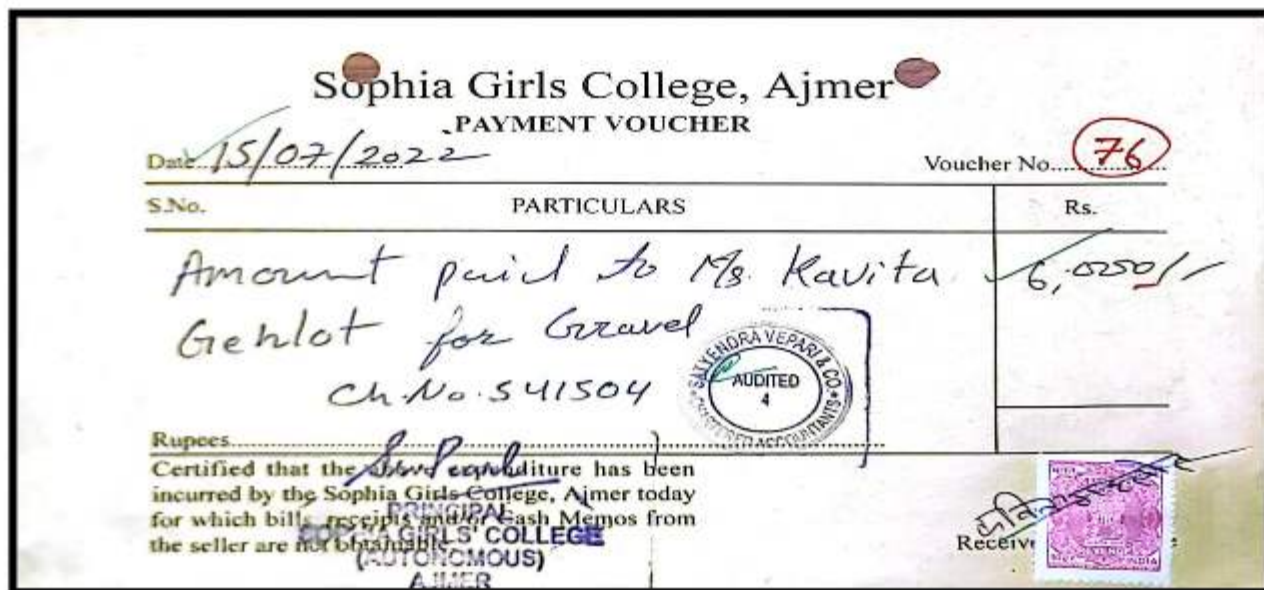 Sophia Girls College, Ajmer
PAYMENT VOUCHER
Date 15/07/2022
Voucher No. 76
S.No. PARTICULARS Rs.
Amount paid to Ms. Kavita 6,0250/-
Gehlot for Gravel
Ch. No. 541504
SATYENDRA VEPARI & CO.
AUDITED
4
CHARTERED ACCOUNTANTS
Rupees
Certified that the above expenditure has been
incurred by the Sophia Girls College, Ajmer today
for which bills, receipts and/or Cash Memos from
the seller are not obtainable.
PRINCIPAL
SOPHIA GIRLS' COLLEGE
(AUTONOMOUS)
AJMER
INDIA